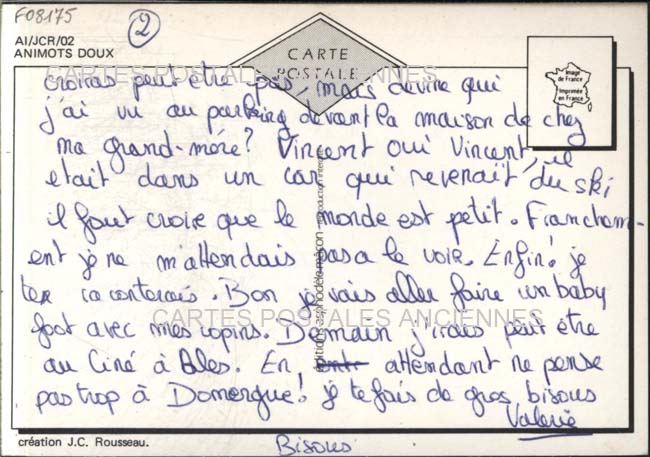 F08175
2
AI/JCR/02
ANIMOTS DOUX
CARTE
POSTALE
Image
de France
Imprimée
en France
CARTES POSTALES ANCIENNES
croiras peut être pas, mais devine qui
j'ai vu au parking devant la maison de chez
ma grand-mère? Vincent oui Vincent, il
etait dans un car qui revenait du ski
il faut croire que le monde est petit. Francham-
ent je ne m'attendais pas a le voir. Enfin! je
raconterais. Bon je vais aller faire un baby
foot avec mes copins. Demain j'irais peut être
CARTES POSTALES ANCIENNES
au Ciné à Ales. En attendant ne pense
pas trop à Domergue! je te fais de gros bisous
Valerie
création J.C. Rousseau.
Bisous